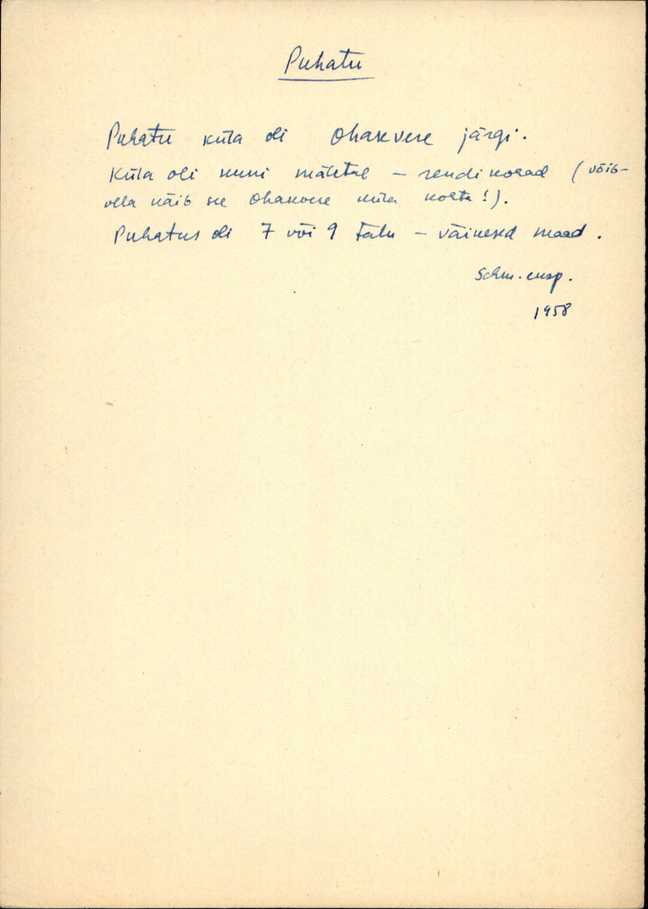 Puhatu
Puhatu küla oli Ohakvere järgi.
Küla oli muni mäletab – rendikohad (võib-
olla käib see Ohakvere küla kohta!).
Puhatus oli 7 või 9 talu – väikesed maad.
1958